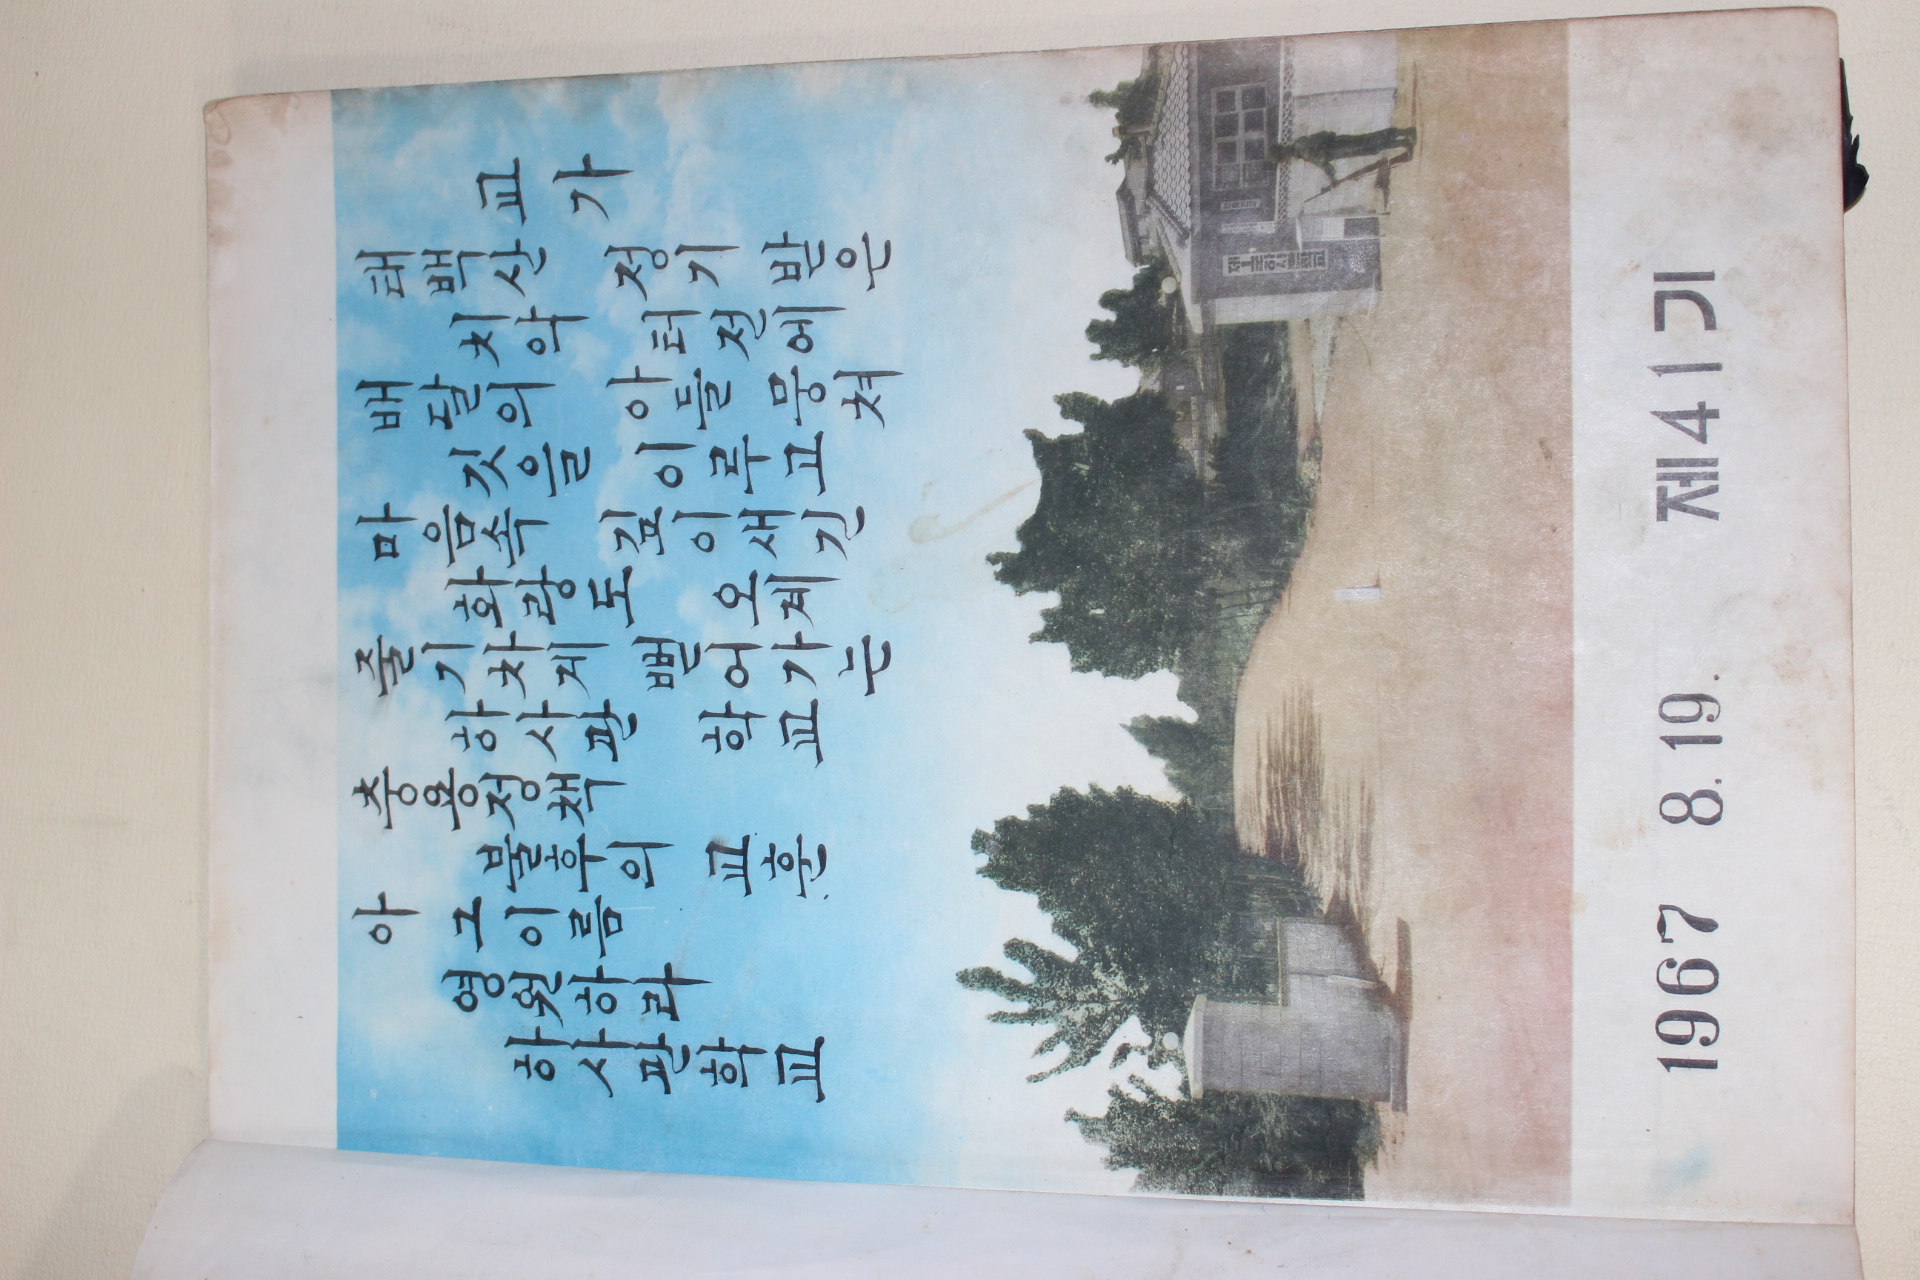 교가
태백산 정기 받은
치악 터전에
배달의 아들 뭉쳐
깃을 이루고
마음속 깊이새긴
화랑도 오계
줄기차게 뻗어가는
하사관 학교
충용정책
불후의 교훈
아 그이름
영원하라
하사관학교
제1군하사관학교
1967 8.19. 제41기